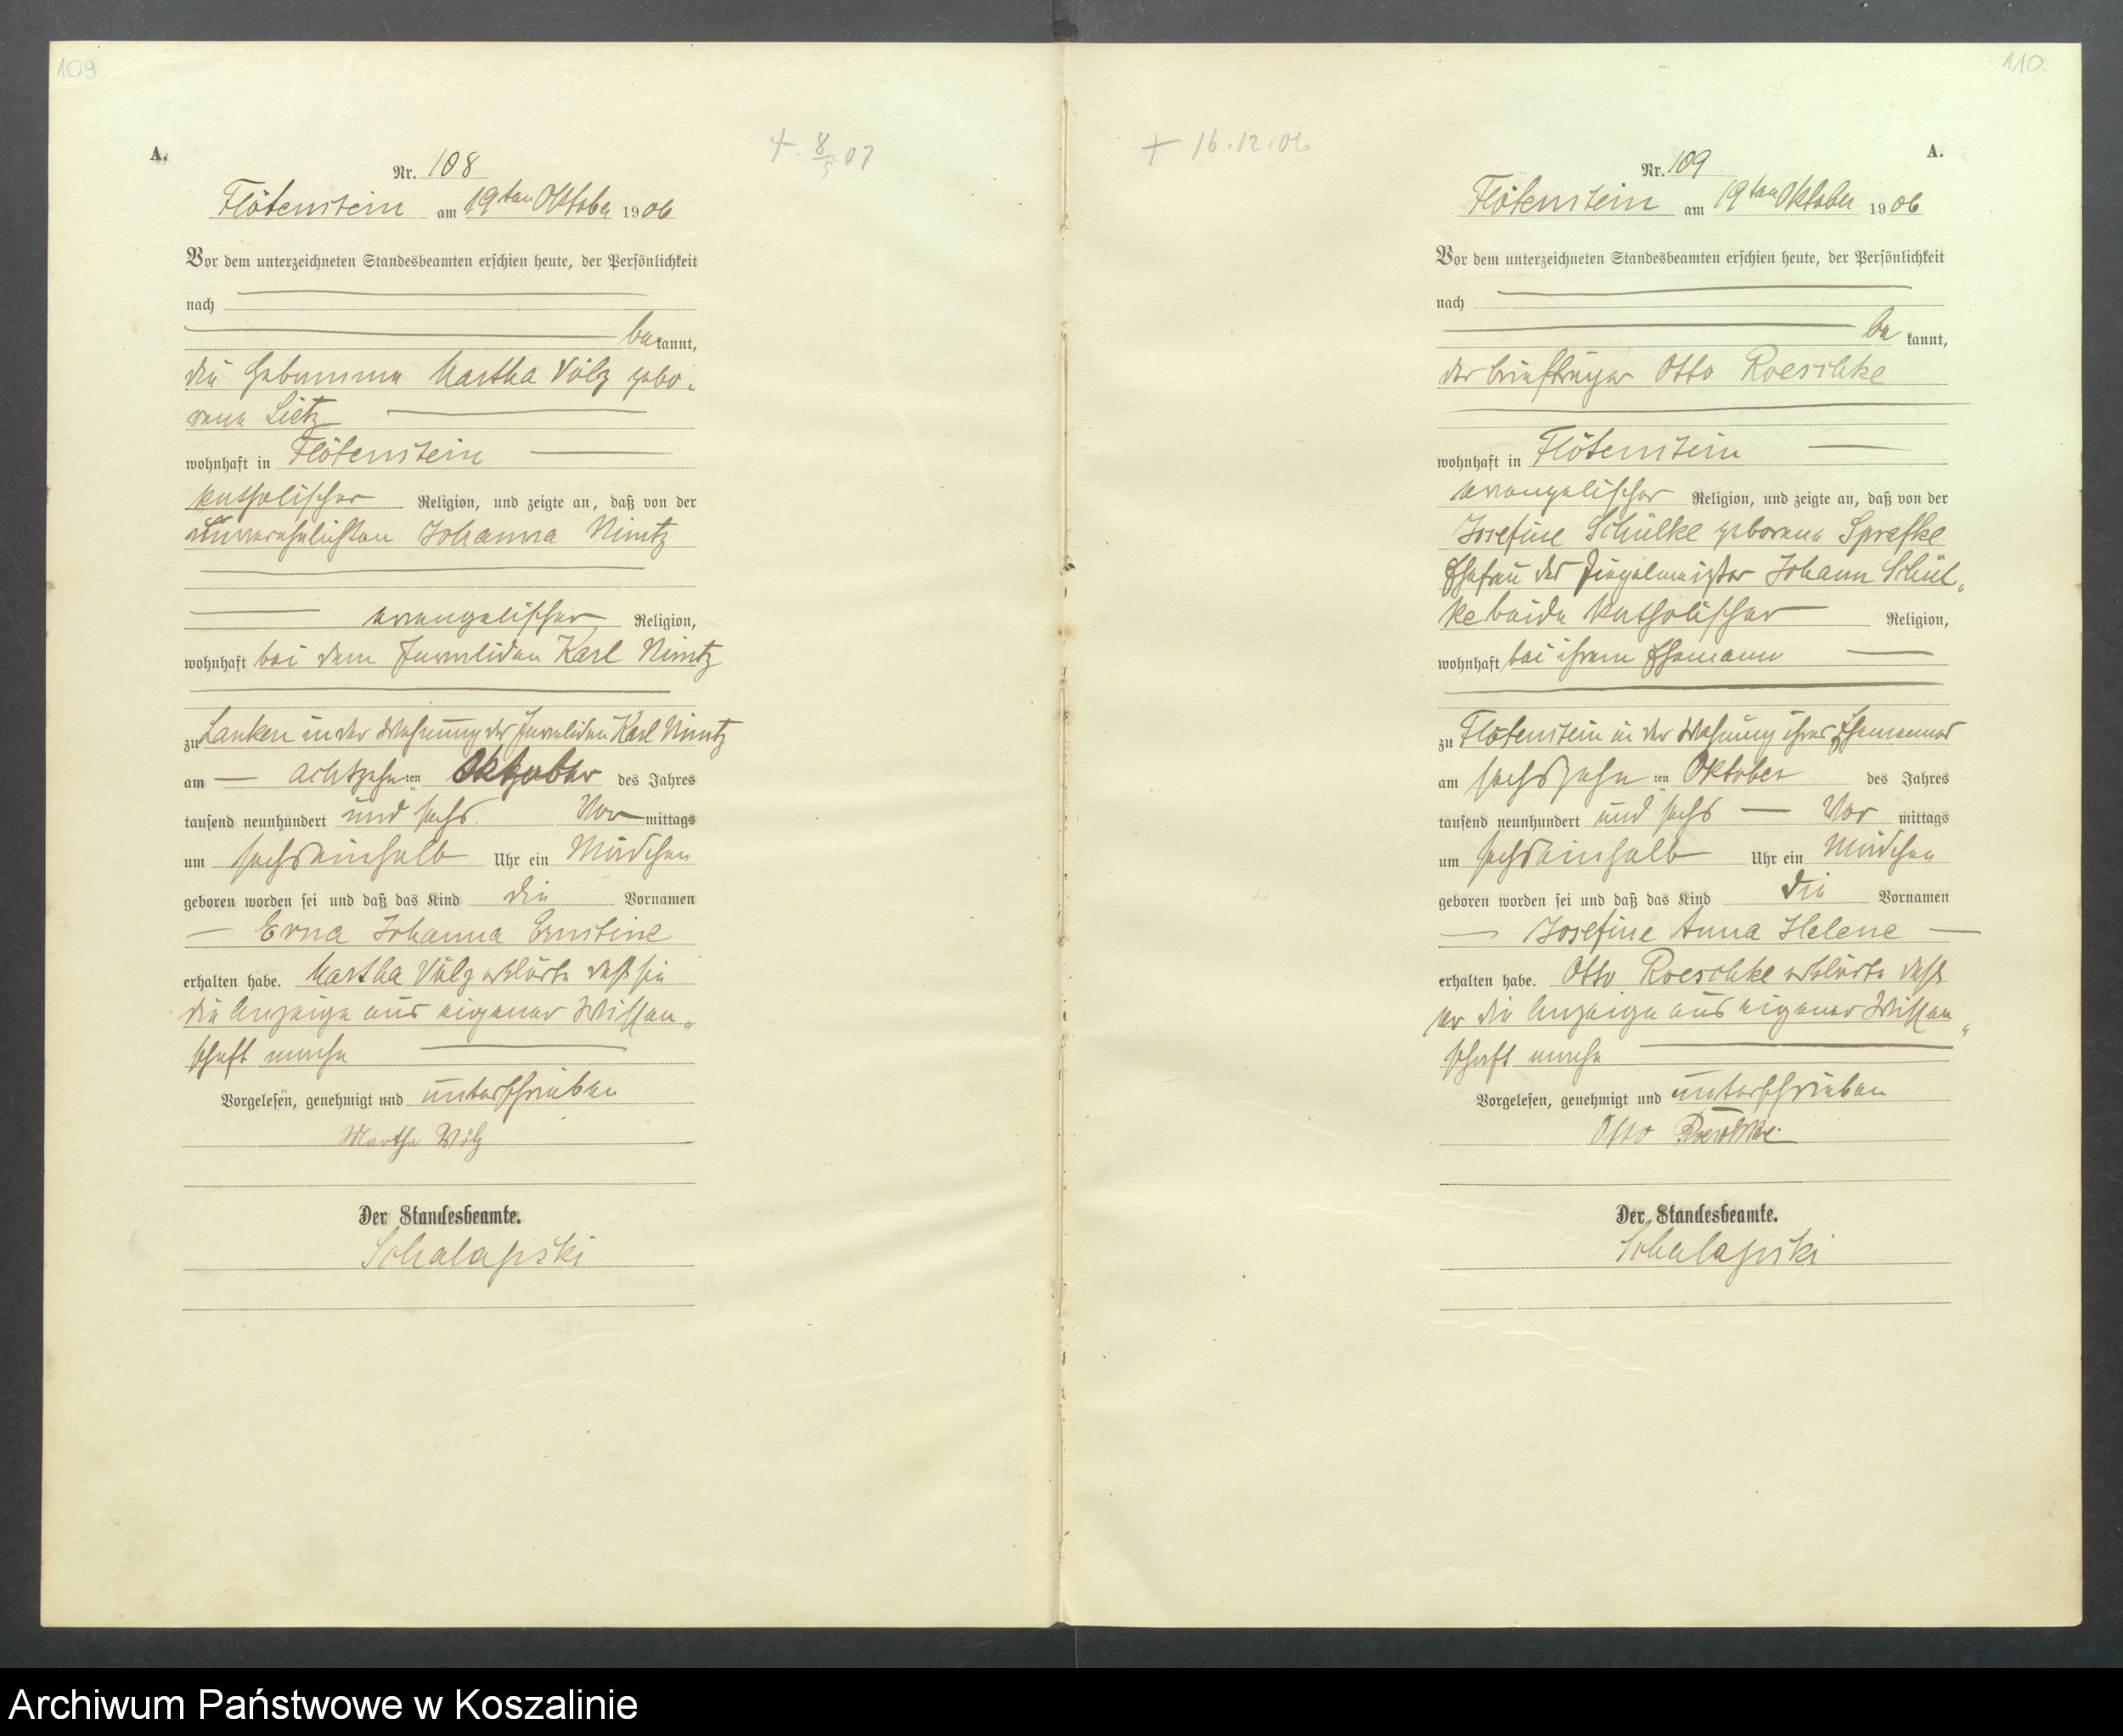 109
A.
+ 8/5 07
Nr. 108
Flötenstein am 19ten Oktober 1906
Vor dem unterzeichneten Standesbeamten erschien heute, der Persönlichkeit
nach
be kannt,
die Hebamme Martha Völz gebo-
rene Lietz
wohnhaft in Flötenstein
katholischer Religion, und zeigte an, daß von der
unverehelichten Johanna Nimtz
evangelischer Religion,
wohnhaft bei dem Invaliden Karl Nimtz
zu Lanken in der Wohnung des Invaliden Karl Nimtz
am achtzehn ten Oktober des Jahres
tausend neunhundert und sechs Vor mittags
um sechseinhalb Uhr ein Mädchen
geboren worden sei und daß das Kind die Vornamen
Erna Johanna Ernstine
erhalten habe. Martha Völz erklärte daß sie
die Anzeige aus eigener Wissen„
schaft mache
Vorgelesen, genehmigt und unterschrieben
Martha Völz
Der Standesbeamte.
Schalapski
110
+ 16.12.06
A.
Nr. 109
Flötenstein am 19ten Oktober 1906
Vor dem unterzeichneten Standesbeamten erschien heute, der Persönlichkeit
nach
be kannt,
der Briefträger Otto Roeschke
wohnhaft in Flötenstein
evangelischer Religion, und zeigte an, daß von der
Josefine Schülke geborene Sprefke
Ehefrau des Ziegelmeister Johann Schül„
ke beide katholischer Religion,
wohnhaft bei ihrem Ehemann
zu Flötenstein in der Wohnung ihres Ehemannes
am sechszehn ten Oktober des Jahres
tausend neunhundert und sechs Vor mittags
um sechseinhalb Uhr ein Mädchen
geboren worden sei und daß das Kind die Vornamen
Josefine Anna Helene
erhalten habe. Otto Roeschke erklärte daß
er die Anzeige aus eigener Wissen„
schaft mache
Vorgelesen, genehmigt und unterschrieben
Otto Roeschke
Der Standesbeamte.
Schalapski
Archiwum Państwowe w Koszalinie